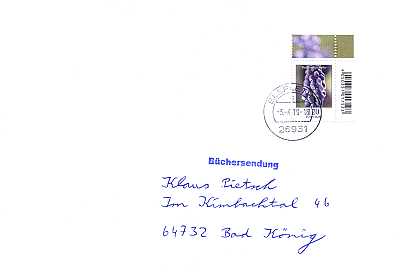 26931
Büchersendung
Klaus Pietsch
Im Kimbachtal 46
64732 Bad König